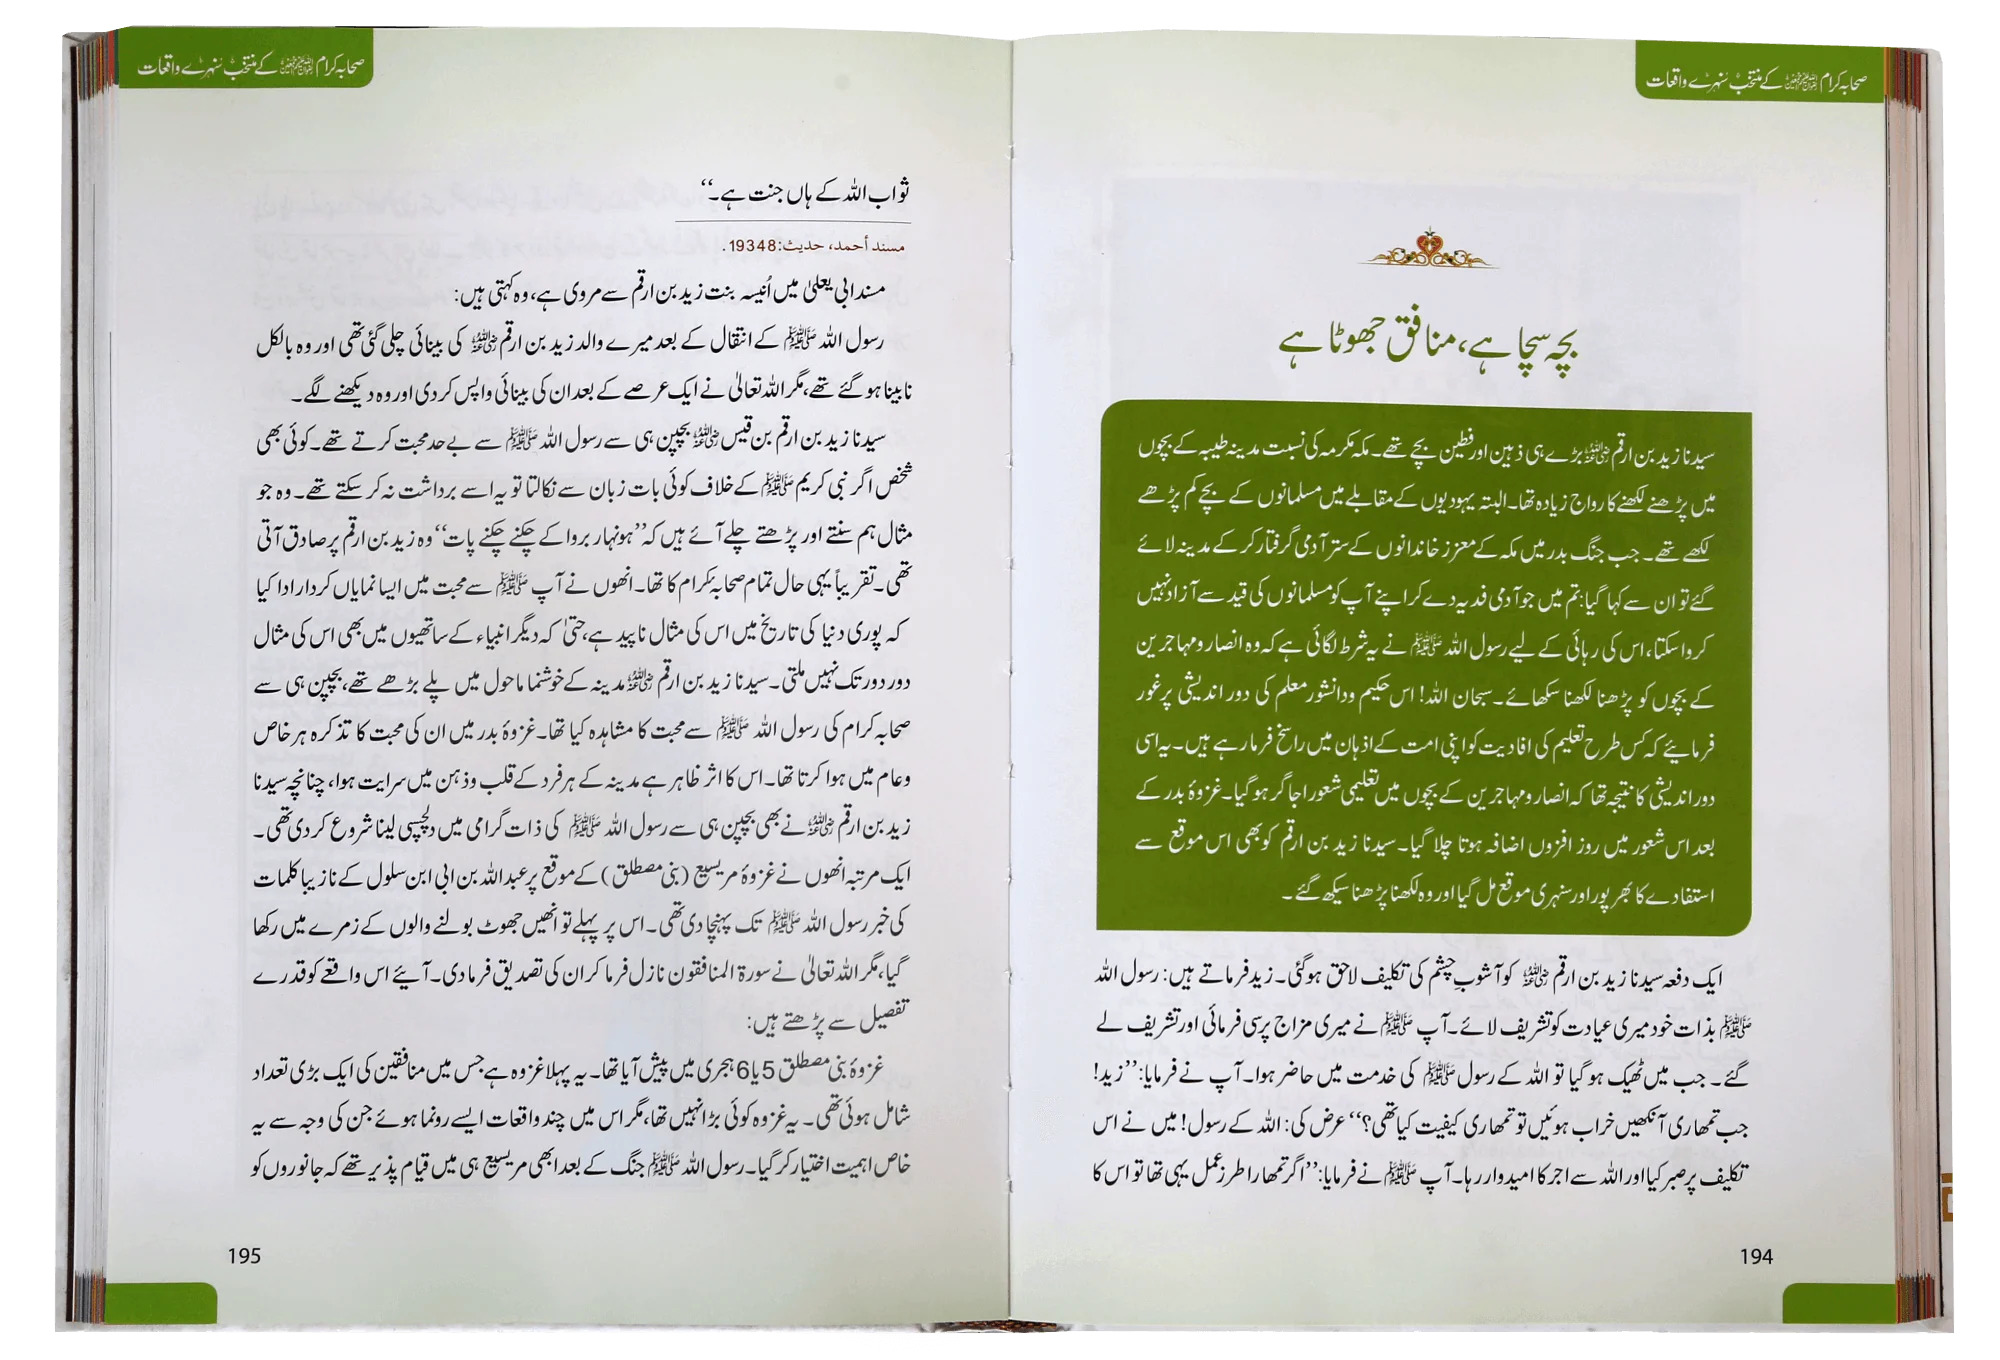 صحابہ کرام رضوان اللہ علیہم اجمعین کے منتخب سنہرے واقعات
بچہ سچا ہے، منافق جھوٹا ہے
سیدنا زید بن ارقم رضی اللہ عنہ بڑے ہی ذہین اور فطین بچے تھے۔ مکہ مکرمہ کی نسبت مدینہ طیبہ کے بچوں
میں پڑھنے لکھنے کا رواج زیادہ تھا۔ البتہ یہودیوں کے مقابلے میں مسلمانوں کے بچے کم پڑھے
لکھے تھے۔ جب جنگ بدر میں مکہ کے معزز خاندانوں کے ستر آدمی گرفتار کر کے مدینہ لائے
گئے تو ان سے کہا گیا: تم میں جو آدمی فدیہ دے کر اپنے آپ کو مسلمانوں کی قید سے آزاد نہیں
کروا سکتا، اس کی رہائی کے لیے رسول اللہ ﷺ نے یہ شرط لگائی ہے کہ وہ انصار و مہاجرین
کے بچوں کو پڑھنا لکھنا سکھائے۔ سبحان اللہ! اس حکیم ودانشور معلم کی دور اندیشی پر غور
فرمائیے کہ کس طرح تعلیم کی افادیت کو اپنی امت کے اذہان میں راسخ فرما رہے ہیں۔ یہ اسی
دور اندیشی کا نتیجہ تھا کہ انصار و مہاجرین کے بچوں میں تعلیمی شعور اجاگر ہو گیا۔ غزوۂ بدر کے
بعد اس شعور میں روز افزوں اضافہ ہوتا چلا گیا۔ سیدنا زید بن ارقم کو بھی اس موقع سے
استفادے کا بھرپور اور سنہری موقع مل گیا اور وہ لکھنا پڑھنا سیکھ گئے۔
ایک دفعہ سیدنا زید بن ارقم رضی اللہ عنہ کو آشوبِ چشم کی تکلیف لاحق ہوگئی۔ زید فرماتے ہیں: رسول اللہ
ﷺ بذات خود میری عیادت کو تشریف لائے۔ آپ ﷺ نے میری مزاج پرسی فرمائی اور تشریف لے
گئے۔ جب میں ٹھیک ہو گیا تو اللہ کے رسول ﷺ کی خدمت میں حاضر ہوا۔ آپ نے فرمایا: ’’زید!
جب تمھاری آنکھیں خراب ہوئیں تو تمھاری کیفیت کیا تھی؟‘‘ عرض کی: اللہ کے رسول! میں نے اس
تکلیف پر صبر کیا اور اللہ سے اجر کا امیدوار رہا۔ آپ ﷺ نے فرمایا: ’’اگر تمھارا طرز عمل یہی تھا تو اس کا
194
صحابہ کرام رضوان اللہ علیہم اجمعین کے منتخب سنہرے واقعات
ثواب اللہ کے ہاں جنت ہے۔‘‘
مسند أحمد، حدیث: 19348.
مسند ابی یعلیٰ میں اُنیسہ بنت زید بن ارقم سے مروی ہے، وہ کہتی ہیں:
رسول اللہ ﷺ کے انتقال کے بعد میرے والد زید بن ارقم رضی اللہ عنہ کی بینائی چلی گئی تھی اور وہ بالکل
نابینا ہو گئے تھے، مگر اللہ تعالیٰ نے ایک عرصے کے بعد ان کی بینائی واپس کر دی اور وہ دیکھنے لگے۔
سیدنا زید بن ارقم بن قیس رضی اللہ عنہ بچپن ہی سے رسول اللہ ﷺ سے بے حد محبت کرتے تھے۔ کوئی بھی
شخص اگر نبی کریم ﷺ کے خلاف کوئی بات زبان سے نکالتا تو یہ اسے برداشت نہ کر سکتے تھے۔ وہ جو
مثال ہم سنتے اور پڑھتے چلے آئے ہیں کہ ’’ہونہار بروا کے چکنے چکنے پات‘‘ وہ زید بن ارقم پر صادق آتی
تھی۔ تقریباً یہی حال تمام صحابہ کرام کا تھا۔ انھوں نے آپ ﷺ سے محبت میں ایسا نمایاں کردار ادا کیا
کہ پوری دنیا کی تاریخ میں اس کی مثال ناپید ہے، حتیٰ کہ دیگر انبیاء کے ساتھیوں میں بھی اس کی مثال
دور دور تک نہیں ملتی۔ سیدنا زید بن ارقم رضی اللہ عنہ مدینہ کے خوشنما ماحول میں پلے بڑھے تھے، بچپن ہی سے
صحابہ کرام کی رسول اللہ ﷺ سے محبت کا مشاہدہ کیا تھا۔ غزوۂ بدر میں ان کی محبت کا تذکرہ ہر خاص
و عام میں ہوا کرتا تھا۔ اس کا اثر ظاہر ہے مدینہ کے ہر فرد کے قلب و ذہن میں سرایت ہوا، چنانچہ سیدنا
زید بن ارقم رضی اللہ عنہ نے بھی بچپن ہی سے رسول اللہ ﷺ کی ذات گرامی میں دلچسپی لینا شروع کر دی تھی۔
ایک مرتبہ انھوں نے غزوۂ مریسیع (بنی مصطلق) کے موقع پر عبداللہ بن ابی ابن سلول کے نازیبا کلمات
کی خبر رسول اللہ ﷺ تک پہنچا دی تھی۔ اس پر پہلے تو انھیں جھوٹ بولنے والوں کے زمرے میں رکھا
گیا، مگر اللہ تعالیٰ نے سورۃ المنافقون نازل فرما کر ان کی تصدیق فرما دی۔ آیئے اس واقعے کو قدرے
تفصیل سے پڑھتے ہیں:
غزوۂ بنی مصطلق 5 یا 6 ہجری میں پیش آیا تھا۔ یہ پہلا غزوہ ہے جس میں منافقین کی ایک بڑی تعداد
شامل ہوئی تھی۔ یہ غزوہ کوئی بڑا نہیں تھا، مگر اس میں چند واقعات ایسے رونما ہوئے جن کی وجہ سے یہ
خاص اہمیت اختیار کر گیا۔ رسول اللہ ﷺ جنگ کے بعد ابھی مریسیع ہی میں قیام پذیر تھے کہ جانوروں کو
195